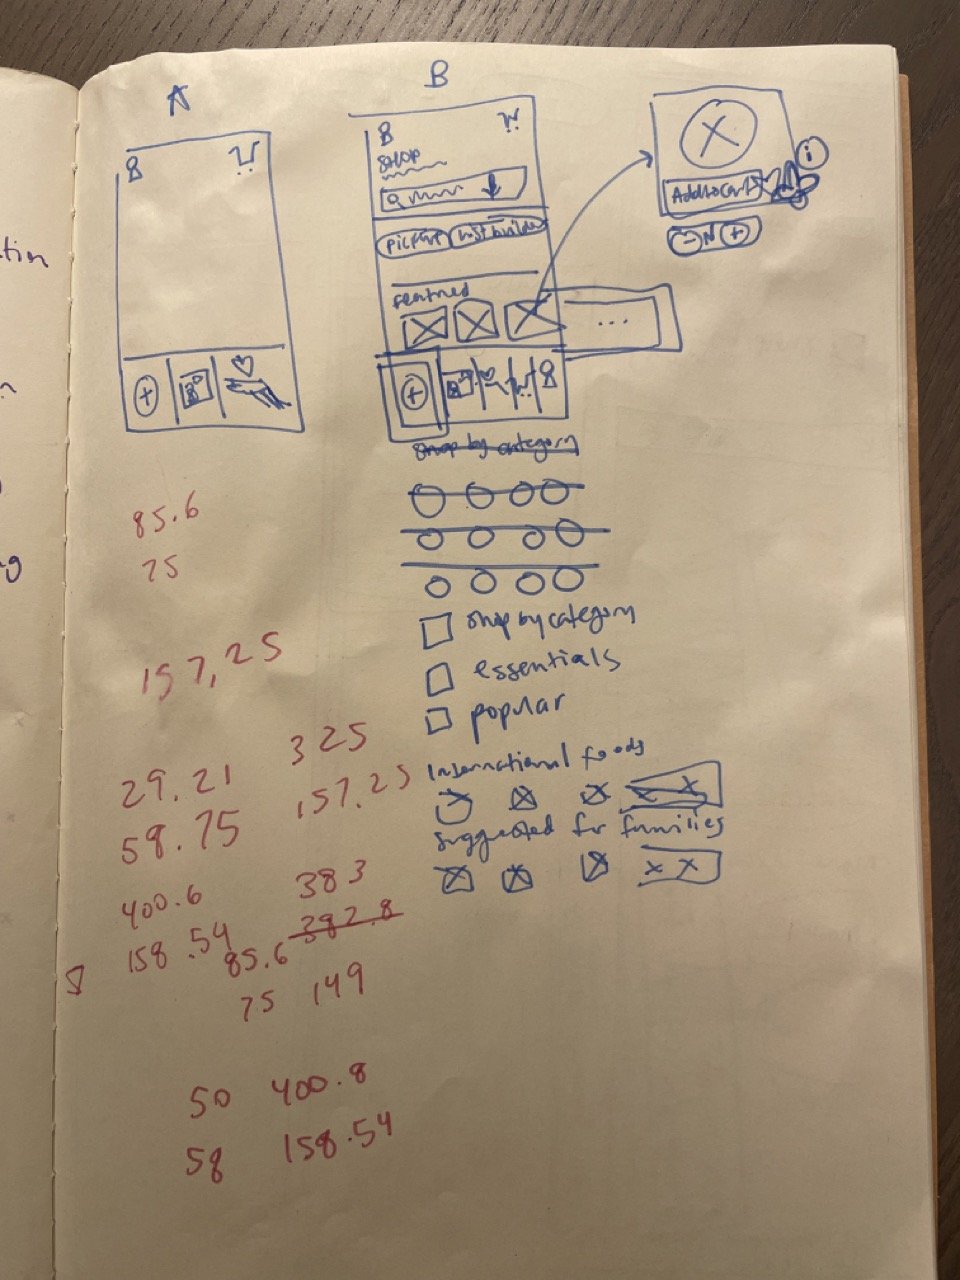 tion
n
g
A
B
SHOP
list builder
featured
...
Add to cart
i
- N +
shop by category
shop by category
essentials
popular
International foods
Suggested for families
85.6
75
157,25
29.21
325
58.75
157.25
400.6
383
158.54
382.8
85.6
75
149
50
400.8
58
158.54